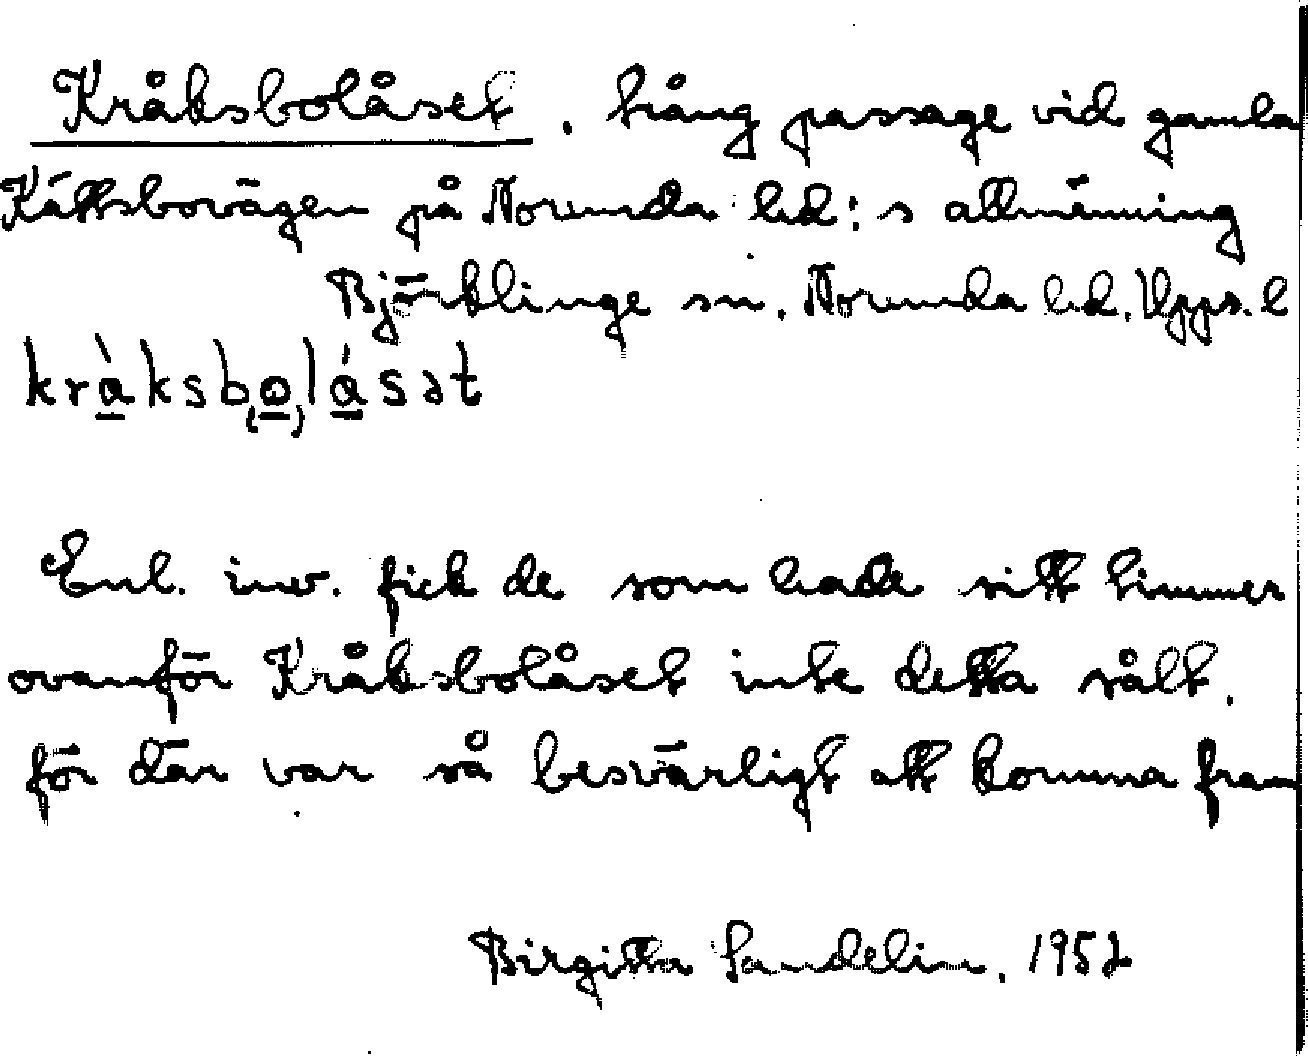 Kråksbolåset. trång passage vid gamla
Kättsbovägen på Norunda hd:s allmänning
Björklinge sn. Norunda hd. Upps. l
kråksbolåsət
Enl. inv. fick de som hade sitt timmer
ovanför Kråksbolåset inte detta sålt.
för där var så besvärligt att komma fram
Birgitta Sandelin. 1952